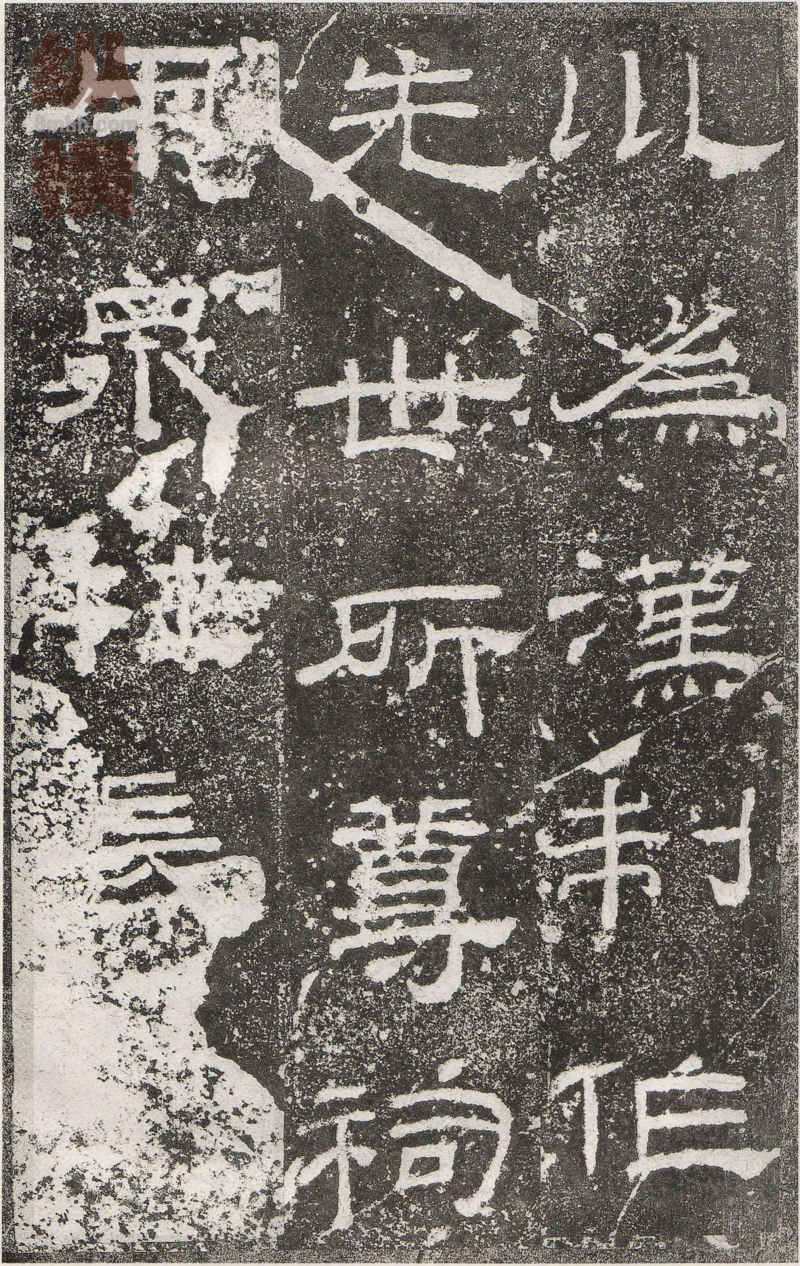 川為漢制作
先世所尊祠
用眾牲長
纵横